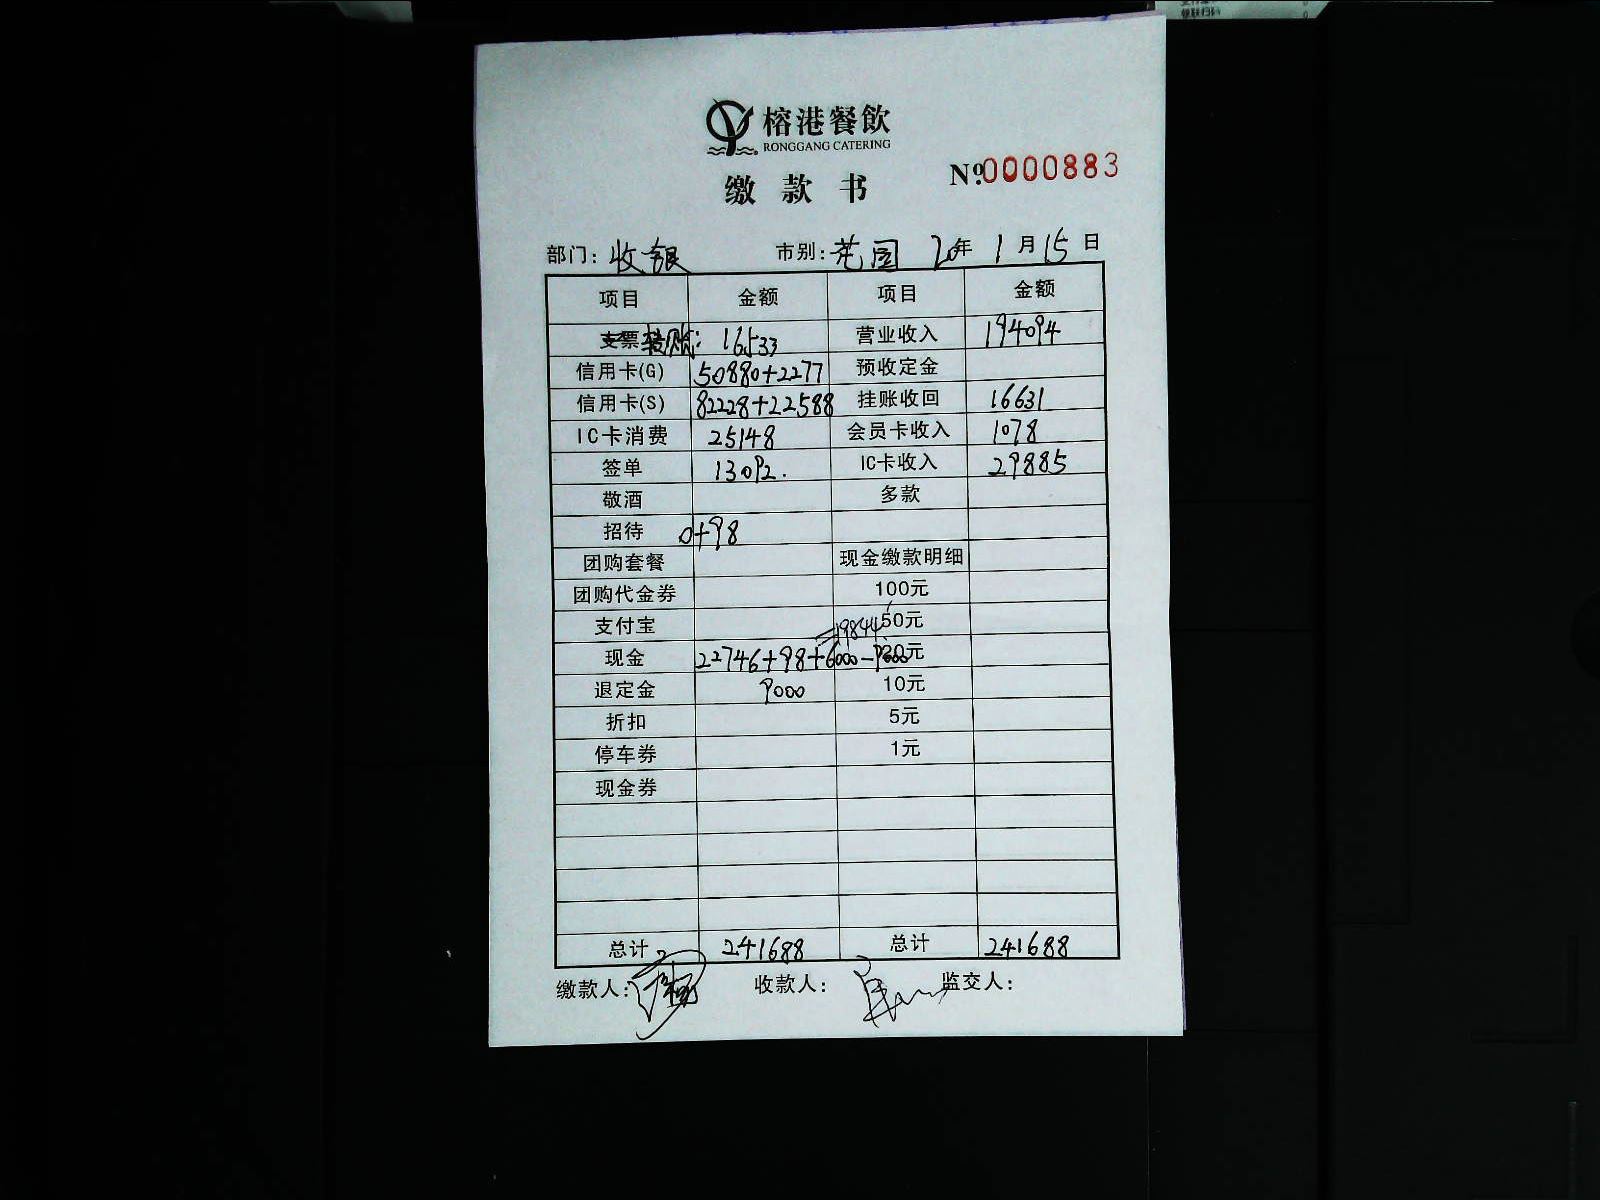 榕港餐飲
RONGGANG CATERING
缴款书
Nº0000883
部门：收银 市别：花园 20年1月15日
项目 金额 项目 金额
支票 转账：16533 营业收入 194094
信用卡(G) 50880+2277 预收定金
信用卡(S) 82228+22588 挂账收回 16631
IC卡消费 25148 会员卡收入 1078
签单 13092. IC卡收入 29885
敬酒 多款
招待 0+98
团购套餐 现金缴款明细
团购代金券 100元
支付宝 50元
=19844
现金 22746+98+6000-9000 20元
退定金 9000 10元
折扣 5元
停车券 1元
现金券
总计 241688 总计 241688
缴款人： 收款人： 监交人：